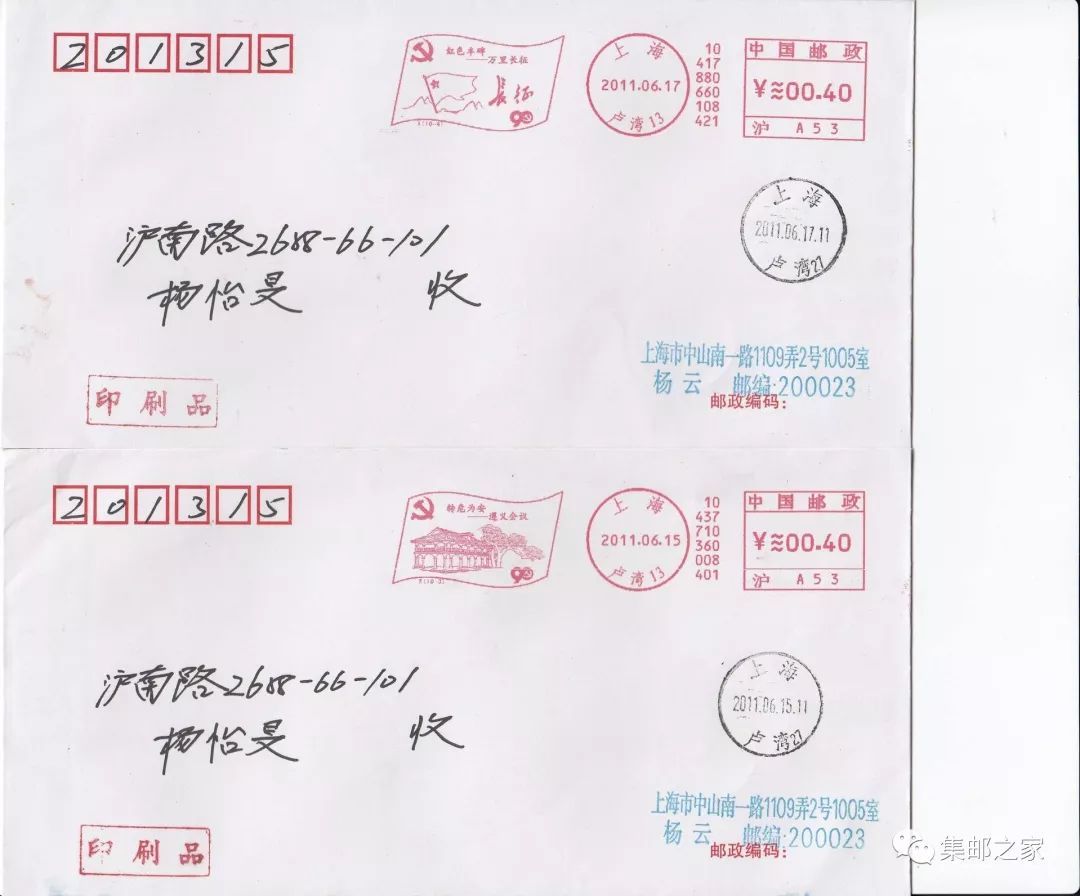 201315
红色丰碑
——万里长征
长征
90
上海
2011.06.17
卢湾13
10
417
880
660
108
421
中国邮政
¥≈00.40
沪 A53
上海
2011.06.17.11
卢湾27
沪南路2688-66-101
杨怡旻 收
上海市中山南一路1109弄2号1005室
杨云 邮编:200023
邮政编码:
印刷品
201315
转危为安
——遵义会议
90
上海
2011.06.15
卢湾13
10
437
710
360
008
401
中国邮政
¥≈00.40
沪 A53
上海
2011.06.15.11
卢湾27
沪南路2688-66-101
杨怡旻 收
上海市中山南一路1109弄2号1005室
杨云 邮编:200023
邮政编码:
印刷品
集邮之家